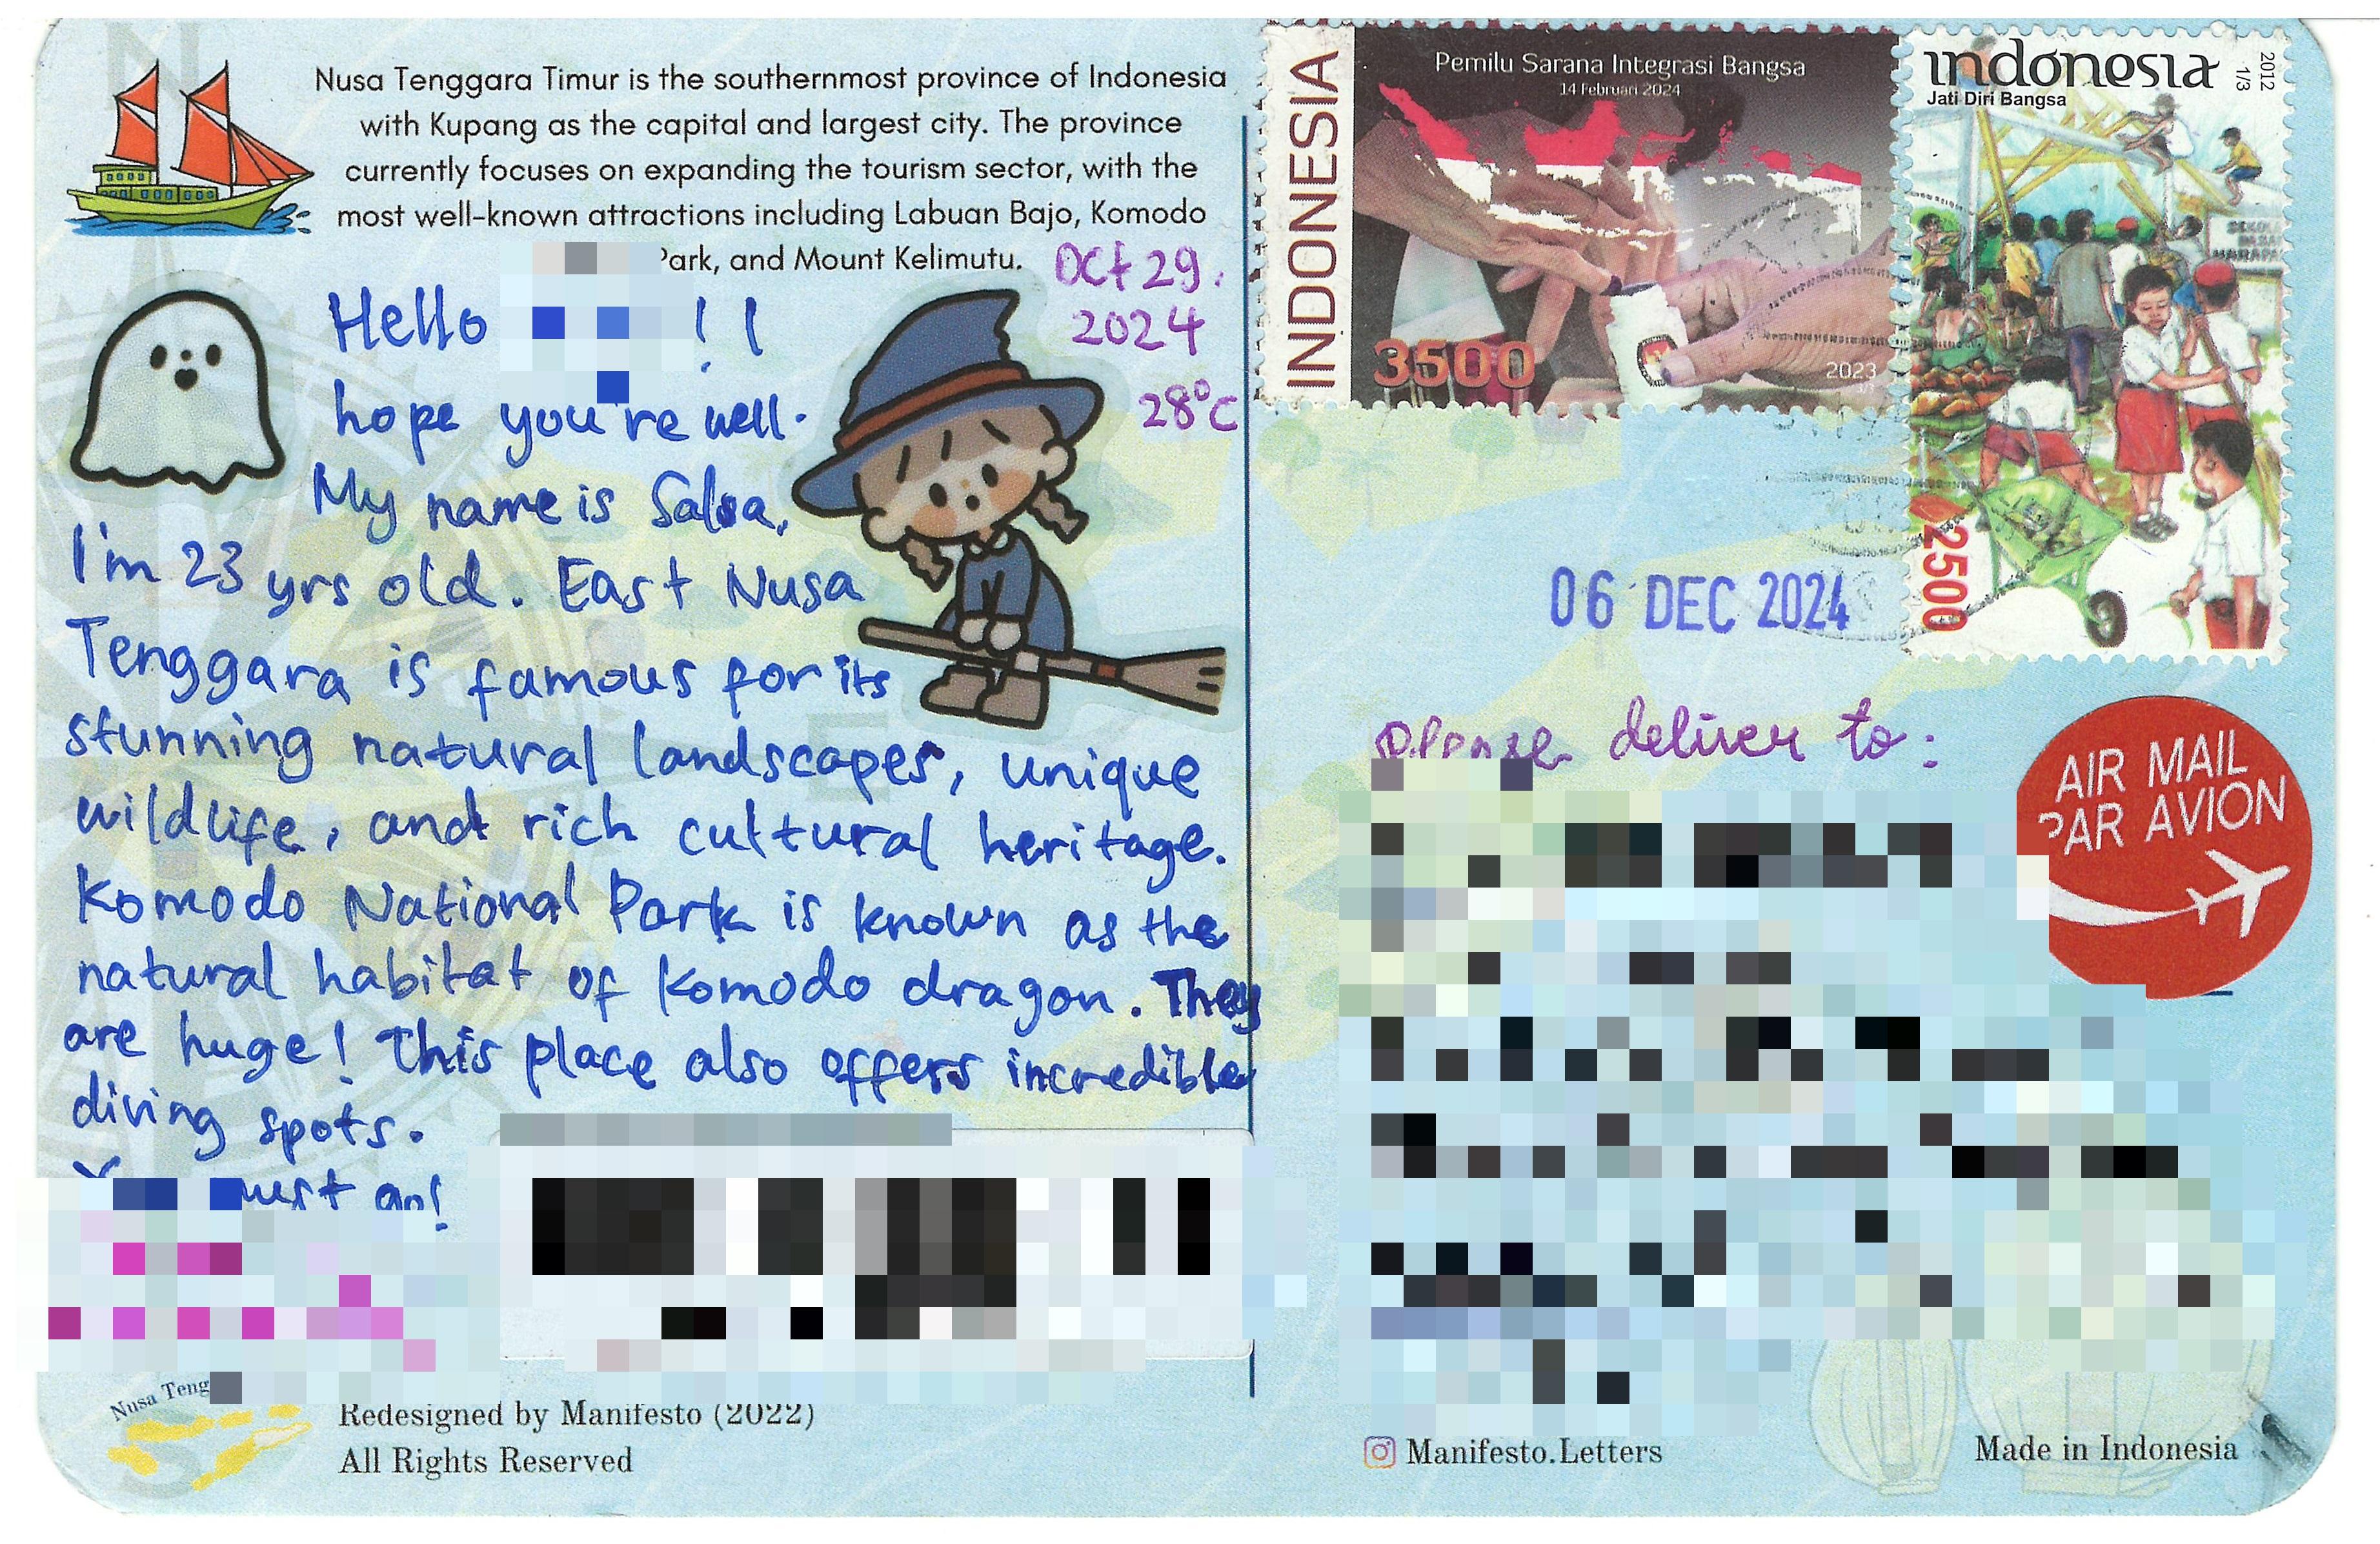 Nusa Tenggara Timur is the southernmost province of Indonesia
with Kupang as the capital and largest city. The province
currently focuses on expanding the tourism sector, with the
most well-known attractions including Labuan Bajo, Komodo
Park, and Mount Kelimutu.
Oct 29.
2024
28°C
Hello !!
hope you're well.
My name is Salsa,
I'm 23 yrs old. East Nusa
Tenggara is famous for its
stunning natural landscapes, unique
wildlife, and rich cultural heritage.
Komodo National Park is known as the
natural habitat of Komodo dragon. They
are huge! This place also offers incredible
diving spots.
must go!
Nusa Teng
Redesigned by Manifesto (2022)
All Rights Reserved
INDONESIA
Pemilu Sarana Integrasi Bangsa
14 Februari 2024
3500
2023
3/3
indonesia
Jati Diri Bangsa
2012
1/3
SEKOLAH
DASAR
HARAPAN
2500
06 DEC 2024
Please deliver to:
AIR MAIL
PAR AVION
Manifesto.Letters
Made in Indonesia